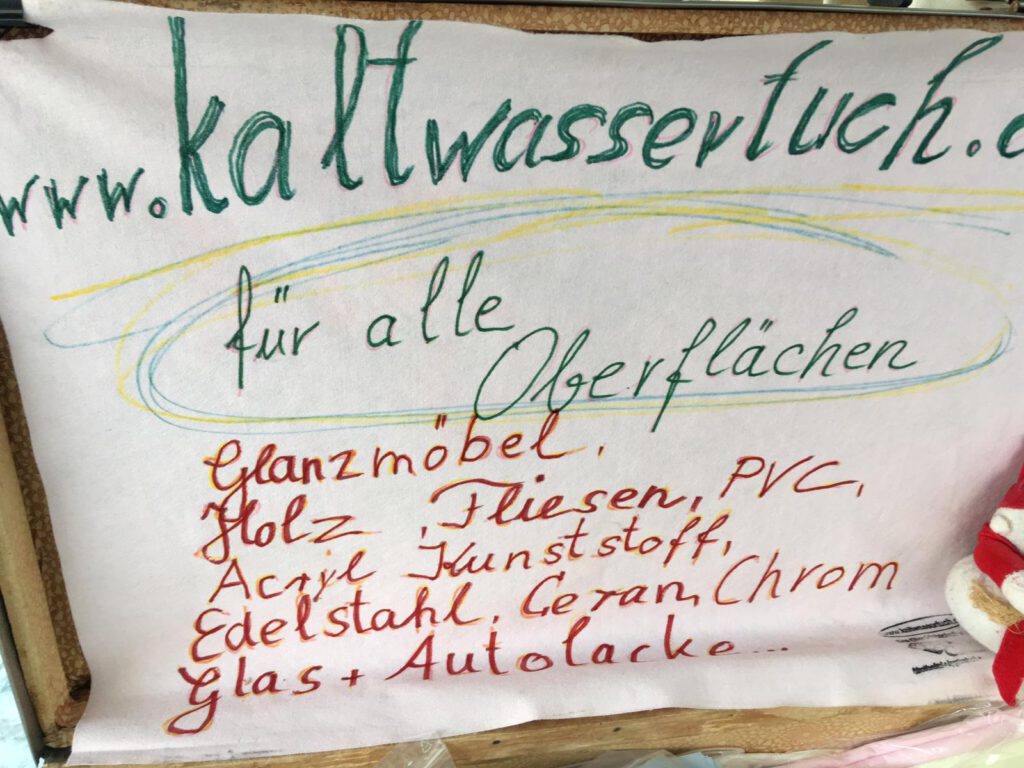 www.kaltwassertuch.
für alle
Oberflächen
Glanzmöbel,
Holz, Fliesen, PVC,
Acryl Kunststoff,
Edelstahl, Ceran, Chrom
Glas + Autolacke...